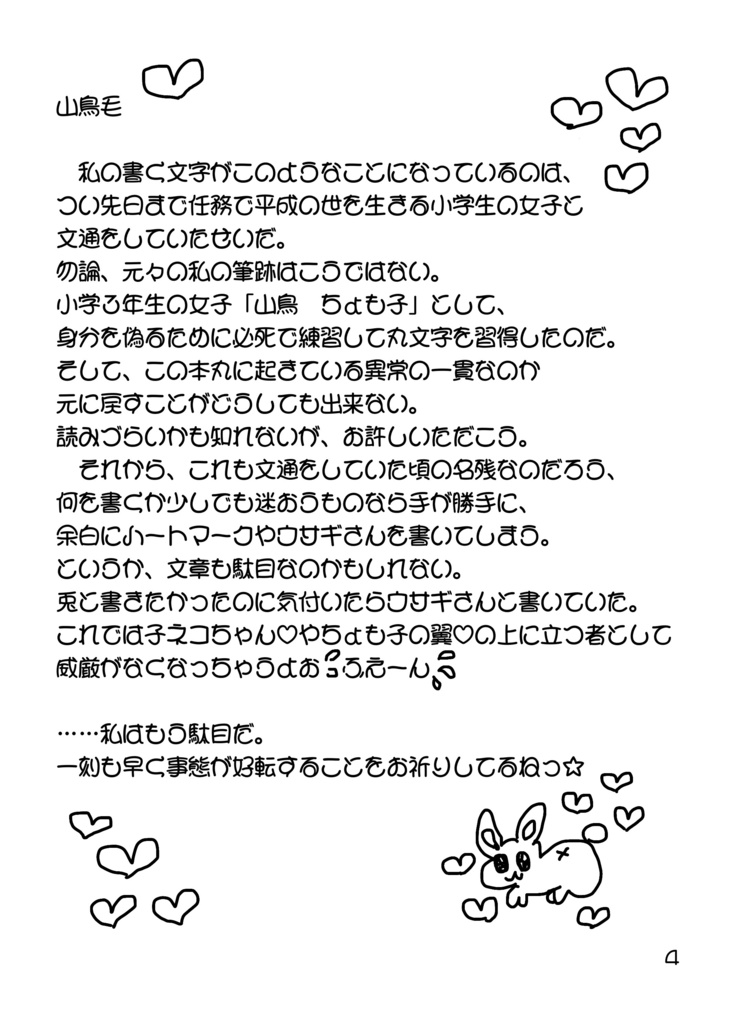 山鳥毛
私の書く文字がこのようなことになっているのは、
つい先日まで任務で平成の世を生きる小学生の女子と
文通をしていたせいだ。
勿論、元々の私の筆跡はこうではない。
小学3年生の女子「山鳥　ちょも子」として、
身分を偽るために必死で練習して丸文字を習得したのだ。
そして、この本丸に起きている異常の一貫なのか
元に戻すことがどうしても出来ない。
読みづらいかも知れないが、お許しいただこう。
それから、これも文通をしていた頃の名残なのだろう、
何を書くか少しでも迷おうものなら手が勝手に、
余白にハートマークやウサギさんを書いてしまう。
というか、文章も駄目なのかもしれない。
兎と書きたかったのに気付いたらウサギさんと書いていた。
これでは子ネコちゃん♡やちょも子の翼♡の上に立つ者として
威厳がなくなっちゃうよお💦ふえーん💦
……私はもう駄目だ。
一刻も早く事態が好転することをお祈りしてるねっ☆
4